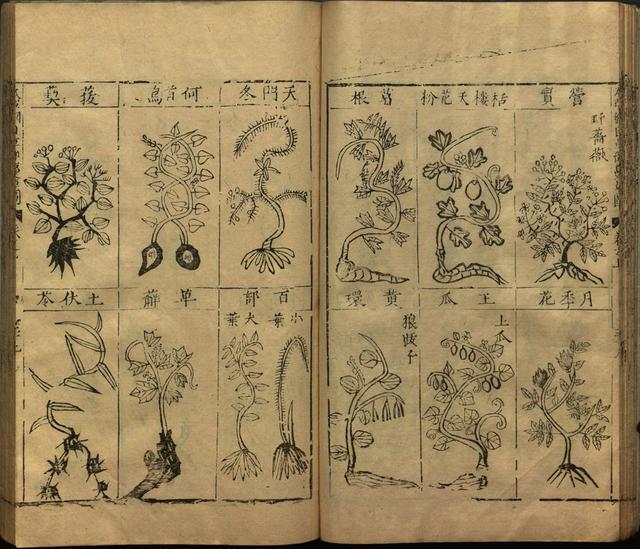 營實
野薔薇
栝樓天花粉
葛根
月季花
王瓜
土瓜
黃環
狼跋子
天門冬
何首烏
菝葜
百部
小葉
大葉
萆薢
土伏苓